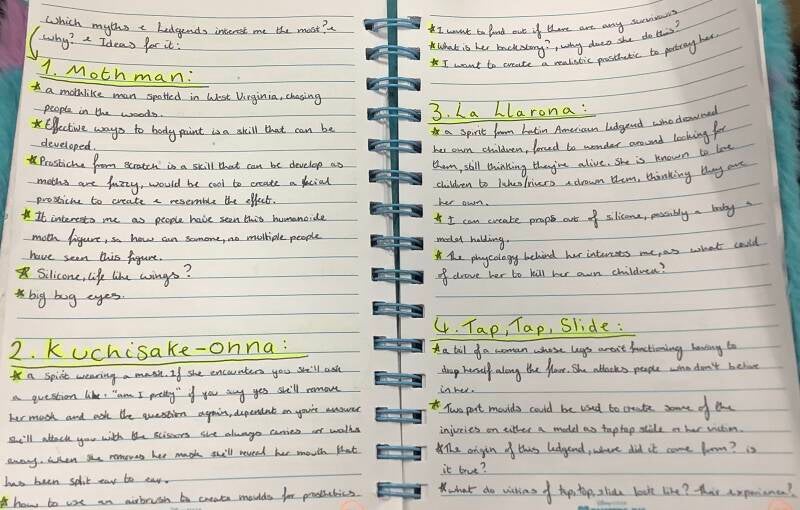 Which myths & Ledgends interest me the most? &
why? & Ideas for it:
1. Mothman:
* a mothlike man spotted in West Virginia, chasing
people in the woods.
* Effective ways to body paint is a skill that can be
developed.
* Prostiche from scratch is a skill that can be develop as
moths are fuzzy, would be cool to create a facial
prostiche to create & resemble the effect.
* It interests me as people have seen this humanoide
moth figure, so how can somone, no multiple people
have seen this figure.
* Silicone, life like wings?
* big bug eyes.
2. Kuchisake-onna:
* a spirit wearing a mask. If she encounters you she'll ask
a question like: "am I pretty" if you say yes she'll remove
her mask and ask the question again, dependent on you're answer
she'll attack you with the scissors she always carries or walks
away. When she removes her mask she'll reveal her mouth that
has been split ear to ear.
* how to use an airbrush to create moulds for prosthetics
* I want to find out if there are any survivours
* What is her backstory?, why does she do this?
* I want to create a realistic prosthetic to portray her.
3. La Llarona:
* a spirit from Latin American Ledgend who drowned
her own children, forced to wonder around looking for
them, still thinking they're alive. She is known to lore
children to lakes/rivers & drown them, thinking they are
her own.
* I can create props out of silicone, possibly a baby a
model holding.
* The phycology behind her interests me, as what could
of drove her to kill her own children?
4. Tap, Tap, Slide:
* a tail of a woman whose legs aren't functioning having to
drag herself along the floor. She attacks people who don't believe
in her.
* Two part moulds could be used to create some of the
injuries on either a model as tap tap slide or her victim.
* The origin of this ledgend, where did it come from? is
it true?
* What do victims of tap, tap, slide look like? Their experience?